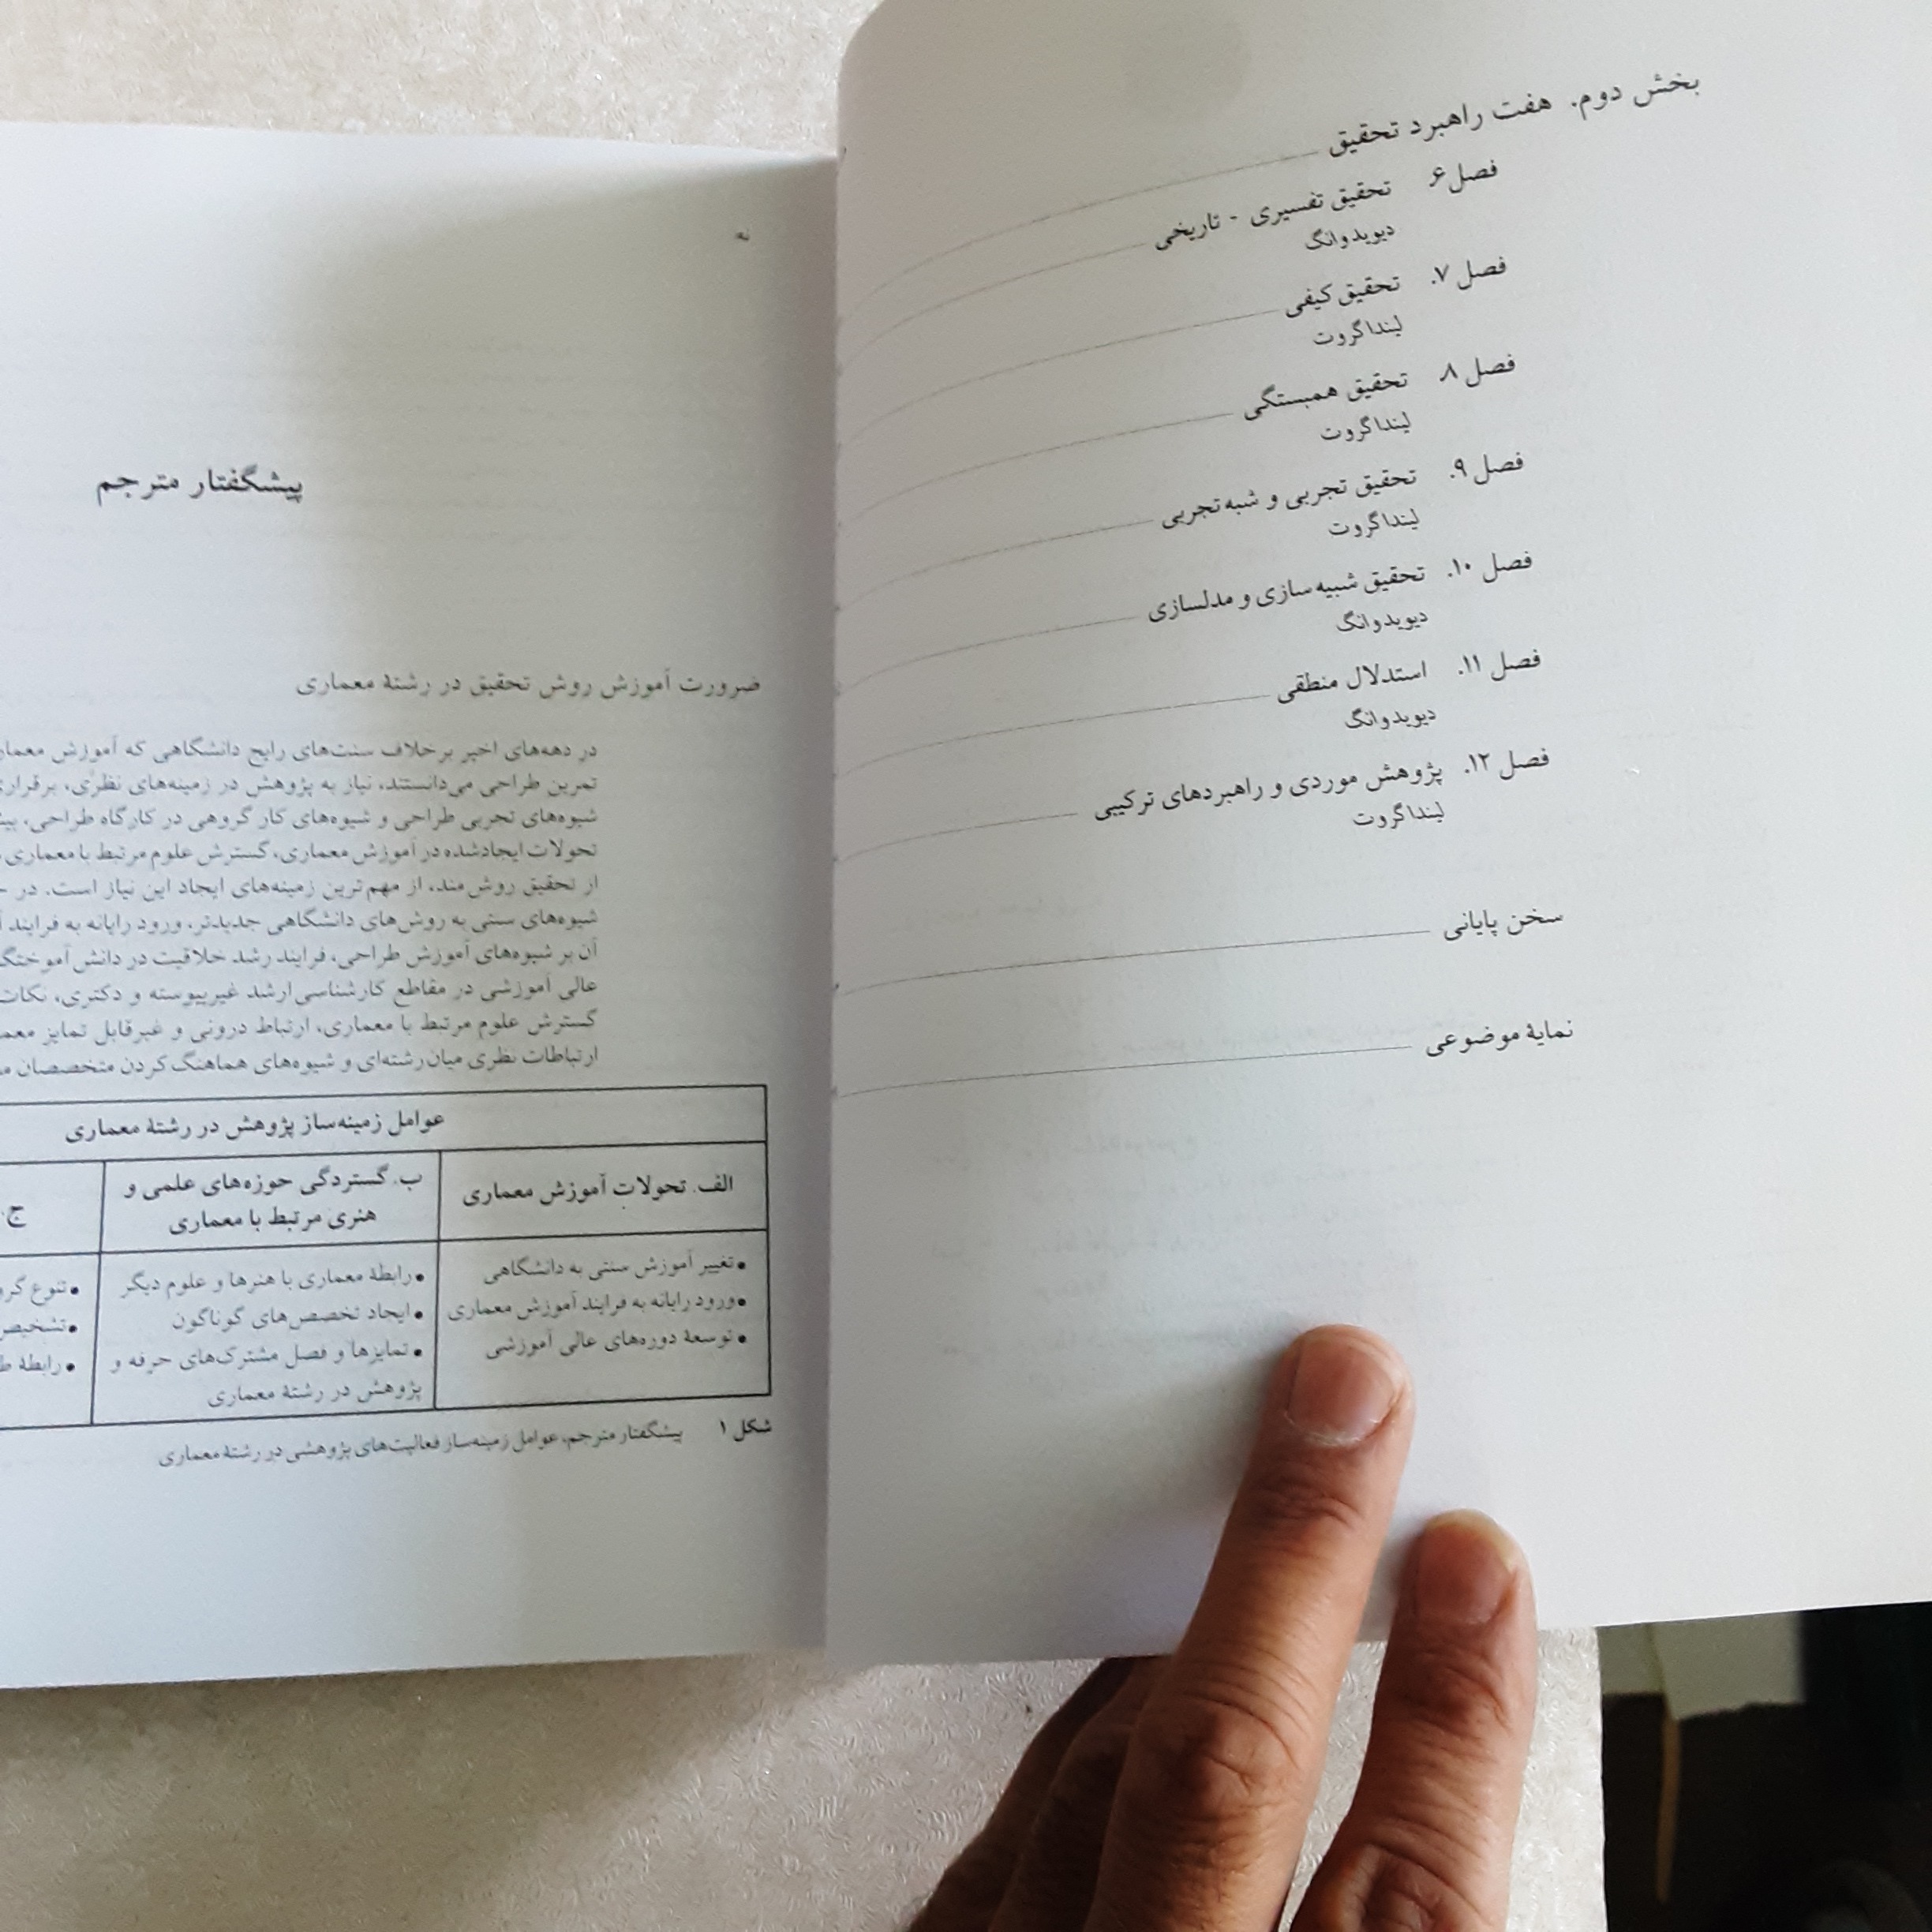 بخش دوم. هفت راهبرد تحقیق
فصل ۶. تحقیق تفسیری - تاریخی
دیوید وانگ
فصل ۷. تحقیق کیفی
لیندا گروت
فصل ۸. تحقیق همبستگی
لیندا گروت
فصل ۹. تحقیق تجربی و شبه تجربی
لیندا گروت
فصل ۱۰. تحقیق شبیه سازی و مدلسازی
دیوید وانگ
فصل ۱۱. استدلال منطقی
دیوید وانگ
فصل ۱۲. پژوهش موردی و راهبردهای ترکیبی
لیندا گروت
سخن پایانی
نمایهٔ موضوعی
نه
پیشگفتار مترجم
ضرورت آموزش روش تحقیق در رشتهٔ معماری
در دهه‌های اخیر برخلاف سنت‌های رایج دانشگاهی که آموزش
تمرین طراحی می‌دانستند، نیاز به پژوهش در زمینه‌های نظری،
شیوه‌های تجربی طراحی و شیوه‌های کار گروهی در کارگاه طراحی،
تحولات ایجادشده در آموزش معماری، گسترش علوم مرتبط با معماری
از تحقیق روش‌مند، از مهم‌ترین زمینه‌های ایجاد این نیاز است. در
شیوه‌های سنتی به روش‌های دانشگاهی جدیدتر، ورود رایانه به فرایند
آن بر شیوه‌های آموزش طراحی، فرایند رشد خلاقیت در
عالی آموزشی در مقاطع کارشناسی‌ارشد غیرپیوسته و دکتری،
گسترش علوم مرتبط با معماری، ارتباط درونی و غیرقابل تمایز
ارتباطات نظری میان‌رشته‌ای و شیوه‌های هماهنگ کردن متخصصان
عوامل زمینه‌ساز پژوهش در رشتهٔ معماری
الف. تحولات آموزش معماری
• تغییر آموزش سنتی به دانشگاهی
• ورود رایانه به فرایند آموزش معماری
• توسعهٔ دوره‌های عالی آموزشی
ب. گستردگی حوزه‌های علمی و
هنری مرتبط با معماری
• رابطهٔ معماری با هنرها و علوم دیگر
• ایجاد تخصص‌های گوناگون
• تمایزها و فصل مشترک‌های حرفه و
پژوهش در رشتهٔ معماری
ج.
• تنوع
• تشخیص
• رابطهٔ
شکل ۱ پیشگفتار مترجم، عوامل زمینه‌ساز فعالیت‌های پژوهشی در رشتهٔ معماری